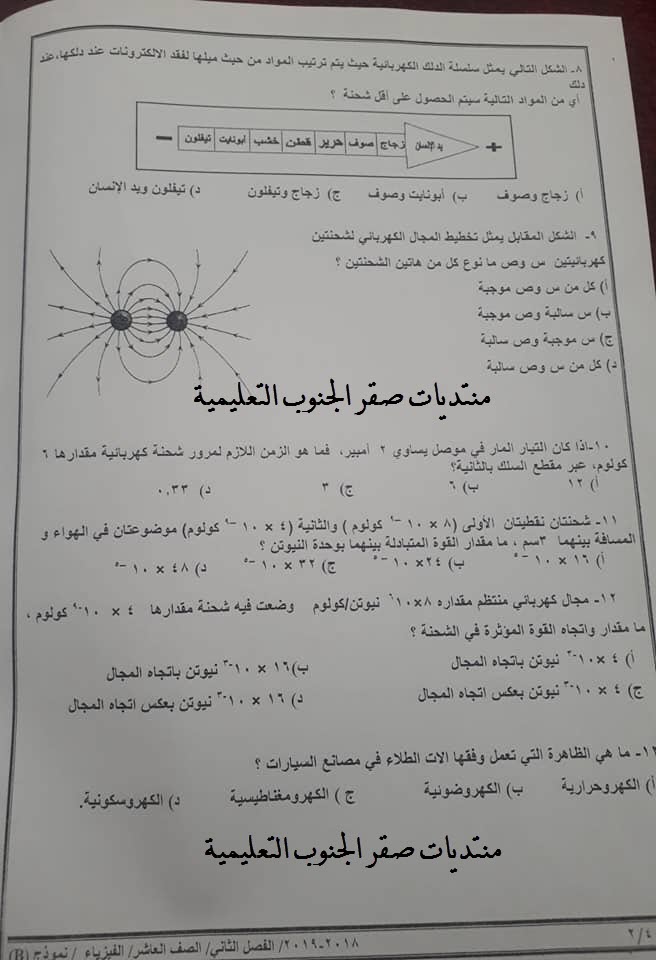 ٨- الشكل التالي يمثل سلسلة الدلك الكهربائية حيث يتم ترتيب المواد من حيث ميلها لفقد الالكترونات عند دلكها،عند
دلك
أي من المواد التالية سيتم الحصول على أقل شحنة ؟
+ يد الإنسان زجاج صوف حرير قطن خشب أبونايت تيفلون −
أ) زجاج وصوف ب) أبونايت وصوف ج) زجاج وتيفلون د) تيفلون ويد الإنسان
٩- الشكل المقابل يمثل تخطيط المجال الكهربائي لشحنتين
كهربائيتين س وص ما نوع كل من هاتين الشحنتين ؟
أ) كل من س وص موجبة
ب) س سالبة وص موجبة
ج) س موجبة وص سالبة
د) كل من س وص سالبة
منتديات صقر الجنوب التعليمية
١٠-اذا كان التيار المار في موصل يساوي ٢ أمبير، فما هو الزمن اللازم لمرور شحنة كهربائية مقدارها ٦
كولوم، عبر مقطع السلك بالثانية؟
أ) ١٢ ب) ٦ ج) ٣ د) ٠,٣٣
١١- شحنتان نقطيتان الأولى (٨ × ١٠⁻⁹ كولوم ) والثانية (٤ × ١٠⁻⁹ كولوم) موضوعتان في الهواء و
المسافة بينهما ٣سم ، ما مقدار القوة المتبادلة بينهما بوحدة النيوتن ؟
أ) ١٦ × ١٠⁻⁵ ب) ٢٤× ١٠⁻⁵ ج) ٣٢ × ١٠⁻⁵ د) ٤٨ × ١٠⁻⁵
١٢- مجال كهربائي منتظم مقداره ٨×١٠⁶ نيوتن/كولوم وضعت فيه شحنة مقدارها ٤ × ١٠⁻⁹ كولوم ،
ما مقدار واتجاه القوة المؤثرة في الشحنة ؟
أ) ٤ ×١٠⁻³ نيوتن باتجاه المجال ب) ١٦ × ١٠⁻³ نيوتن باتجاه المجال
ج) ٤ × ١٠⁻³ نيوتن بعكس اتجاه المجال د) ١٦ × ١٠⁻³ نيوتن بعكس اتجاه المجال
١٣- ما هي الظاهرة التي تعمل وفقها الات الطلاء في مصانع السيارات ؟
أ) الكهروحرارية ب) الكهروضوئية ج ) الكهرومغناطيسية د) الكهروسكونية.
منتديات صقر الجنوب التعليمية
٢/٤
٢٠١٨-٢٠١٩/ الفصل الثاني/ الصف العاشر/ الفيزياء / نموذج (B)